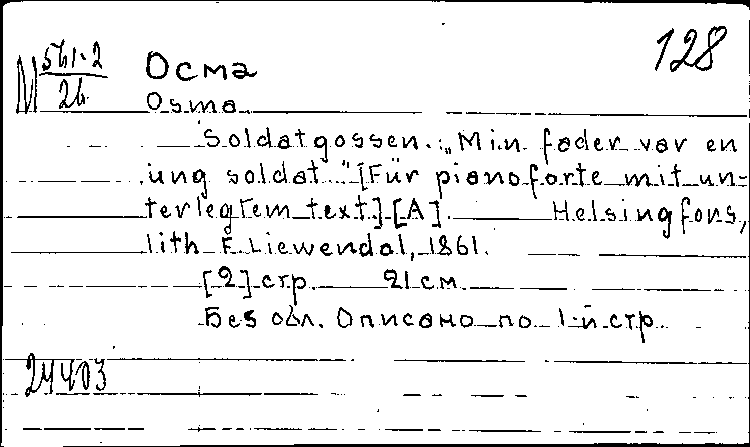 128
M 561-2
26
Осма
Osma
Soldatgossen. "Min fader var en
ung soldat" [Für pianoforte mit un-
terlegtem text] [A]. Helsingfors,
lith F. Liewendal, 1861.
[2] стр. 21 см.
Без обл. Описано по 1-й стр.
24403